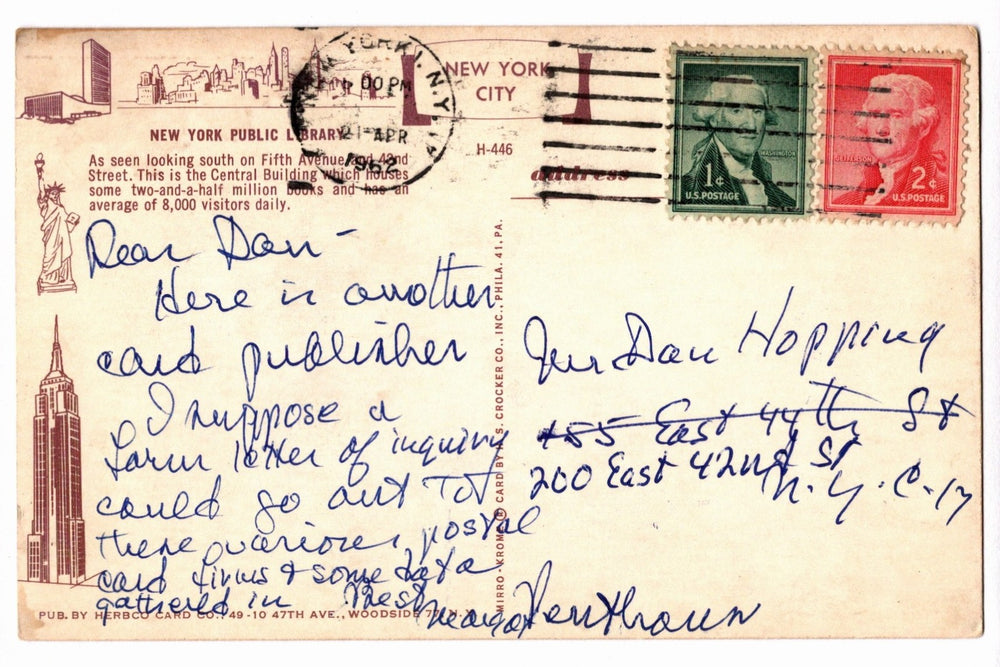 NEW YORK, N.Y.
00 PM
21 APR
1962
NEW YORK
CITY
NEW YORK PUBLIC LIBRARY
H-446
As seen looking south on Fifth Avenue and 42nd
Street. This is the Central Building which houses
some two-and-a-half million books and has an
average of 8,000 visitors daily.
address
WASHINGTON
1¢
U.S. POSTAGE
JEFFERSON
2¢
U.S. POSTAGE
Dear Dan -
Here is another
card publisher
I suppose a
form letter of inquiry
could go out to
these various postal
card firms & some data
gathered in Best
PUB. BY HERBCO CARD CO., 49-10 47TH AVE., WOODSIDE 77, N.Y.
MIRRO-KROME ® CARD BY H. S. CROCKER CO., INC., PHILA. 41, PA.
Mr Dan Hopping
155 East 44th St
200 East 42nd St
N. Y. C. 17